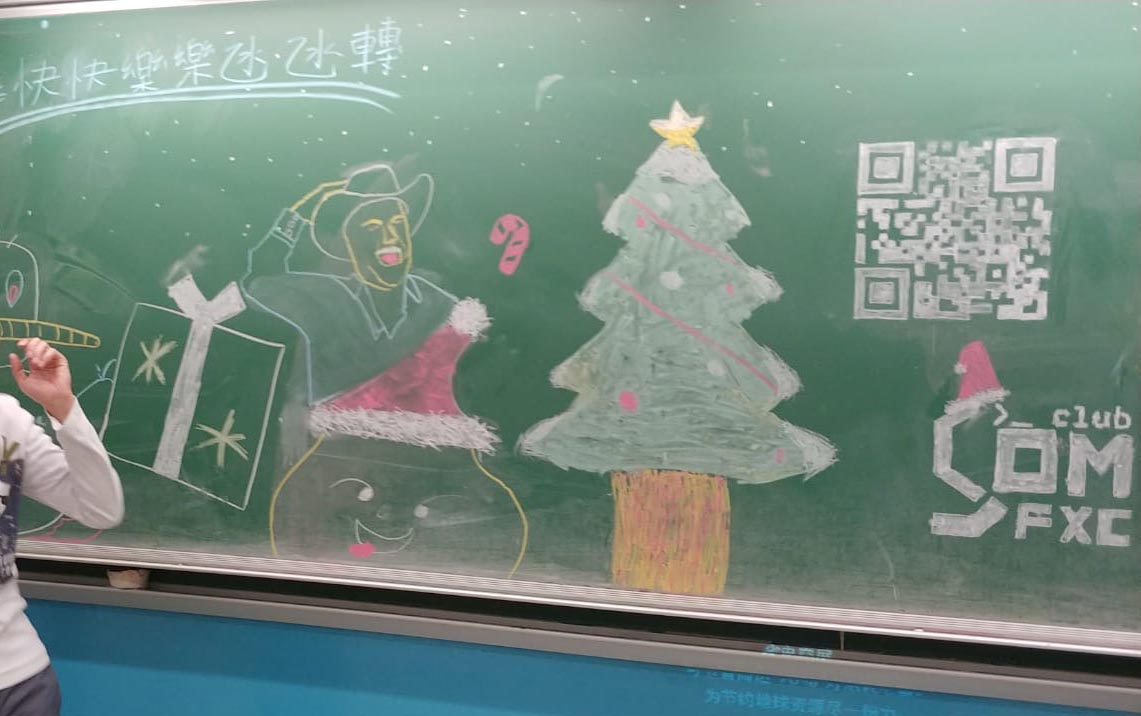 快快樂樂氹氹轉
>_ club
COM
FXC
为节约地球资源尽一份力